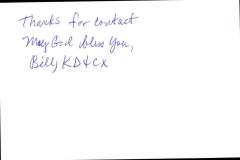 Thanks for contact
May God bless you,
Billy KD4CX